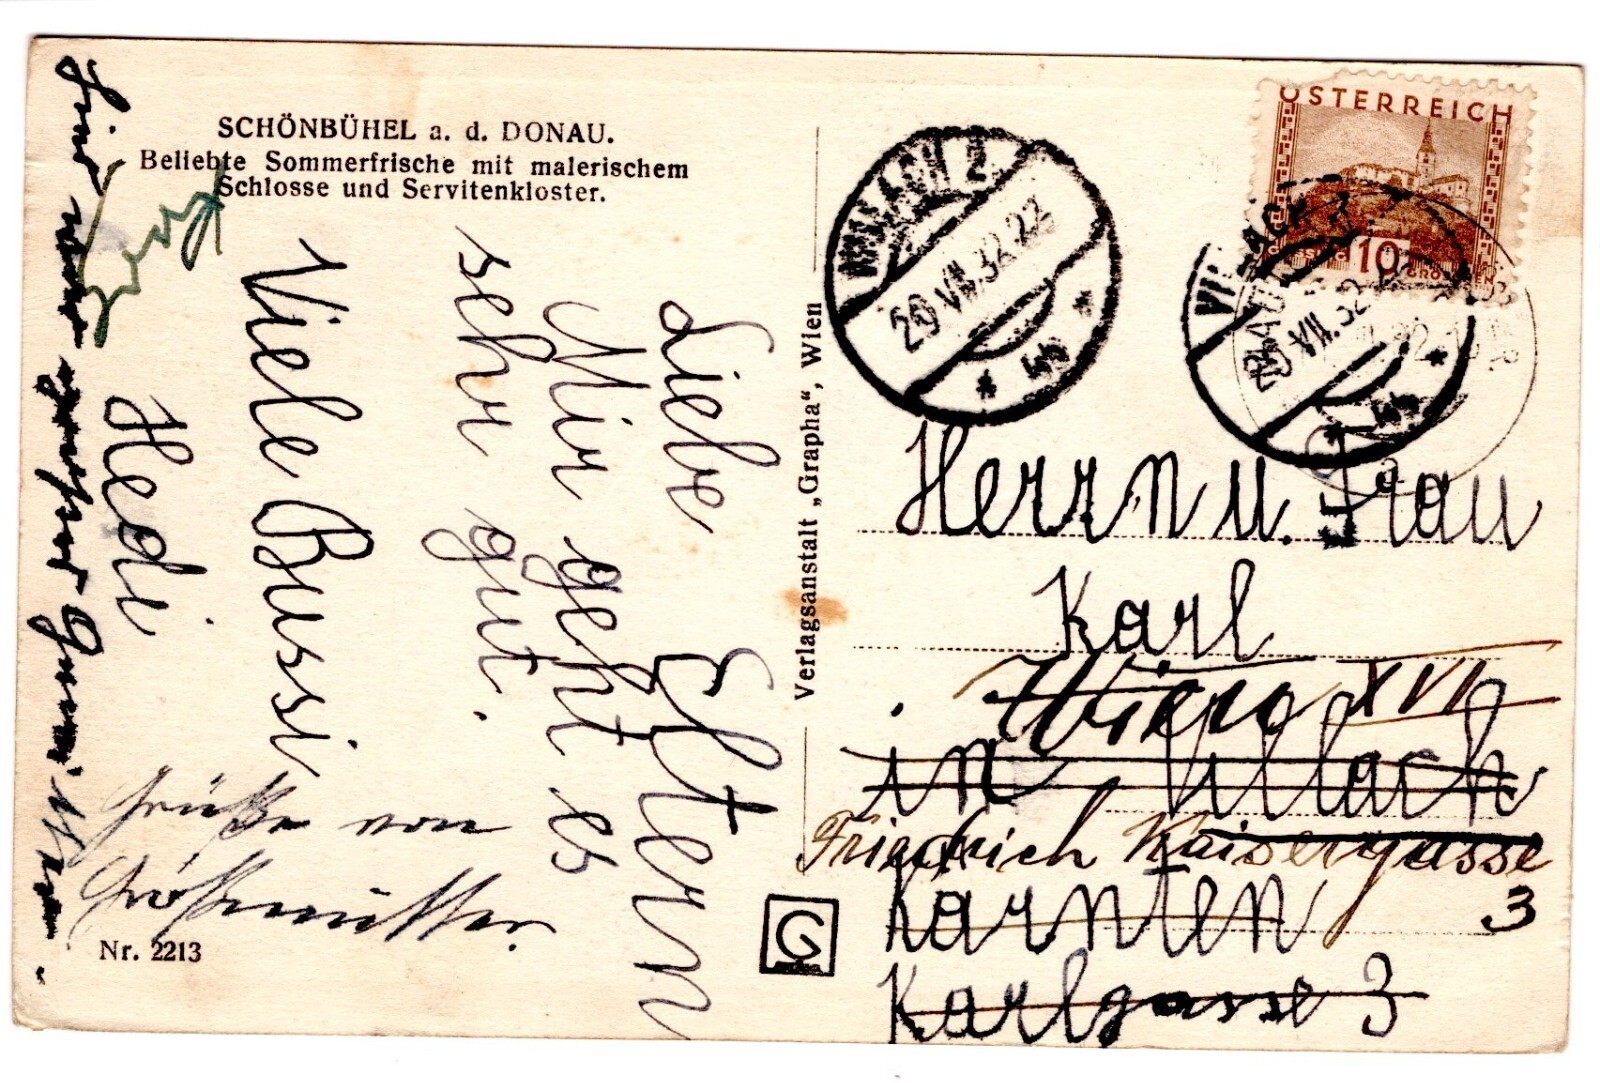 SCHÖNBÜHEL a. d. DONAU.
Beliebte Sommerfrische mit malerischem
Schlosse und Servitenkloster.
Liebe Eltern
Mir geht es
sehr gut.
Viele Bussi
Hedi
Grüße von
Großmutter.
Nr. 2213
Verlagsanstalt „Grapha“, Wien
G
VILLACH 2
20.VII.32.22
* 4b *
ÖSTERREICH
10
GROSCHEN
VILLACH 2
20.VIII.32
Herrn u. Frau
Karl
Wien XVII
in Villach
Friedrich Kaisergasse
3
Kärnten
Karlgasse 3